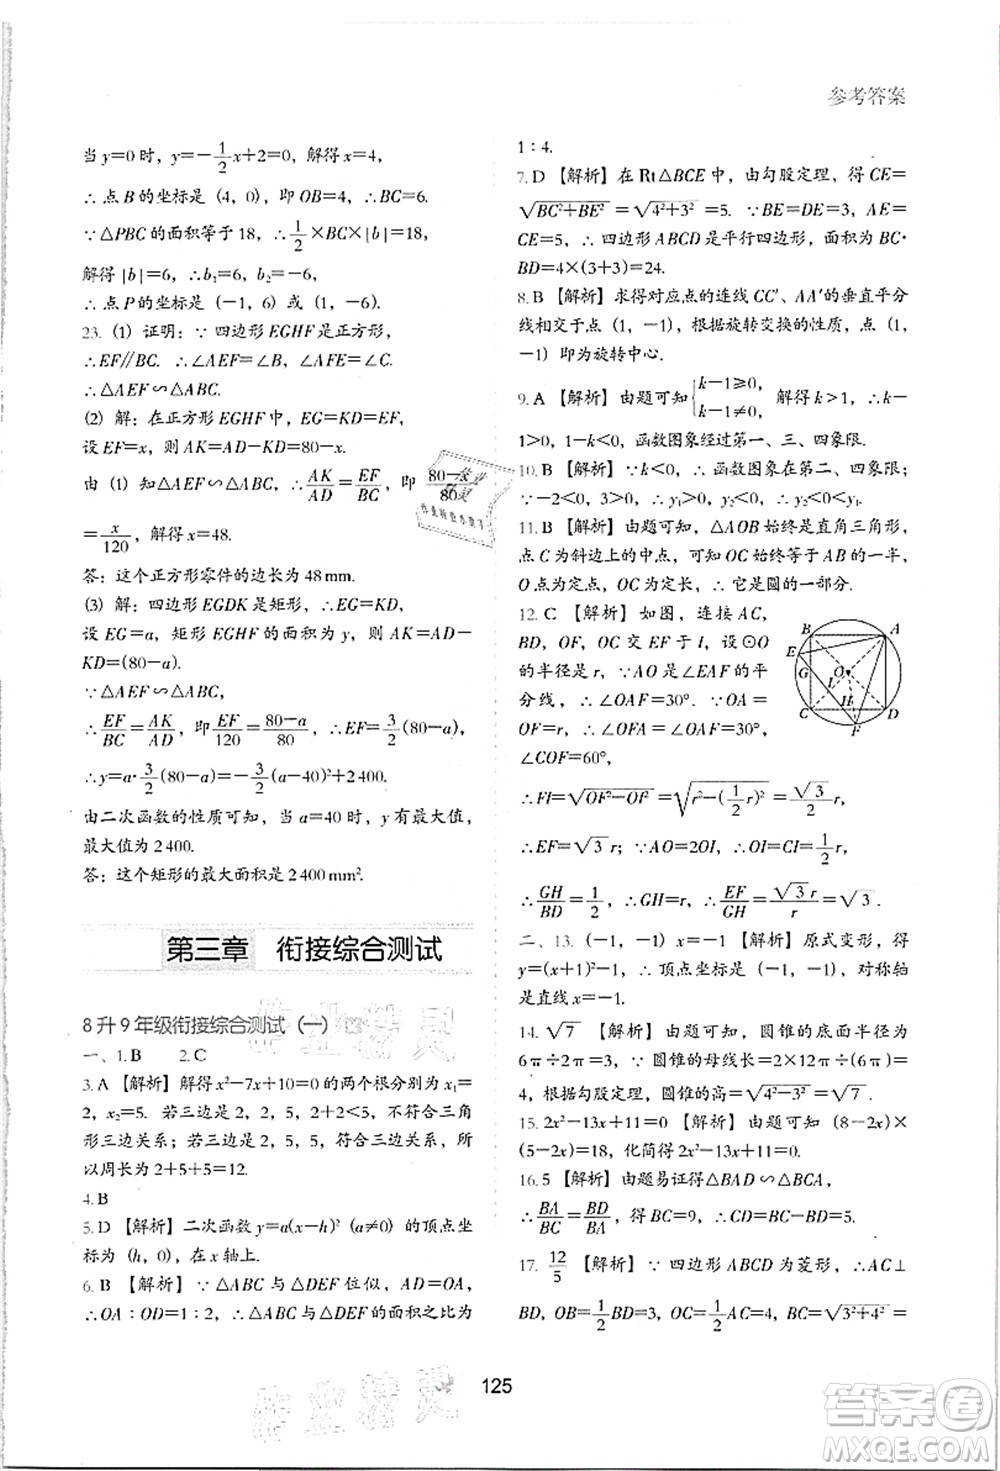 参考答案
当y=0时，y=-1/2x+2=0，解得x=4，
∴点B的坐标是(4，0)，即OB=4，∴BC=6.
∵△PBC的面积等于18，∴1/2×BC×|b|=18，
解得|b|=6，∴b₁=6，b₂=-6.
∴点P的坐标是(-1，6)或(1，-6).
23. (1) 证明：∵四边形EGHF是正方形，
∴EF∥BC. ∴∠AEF=∠B，∠AFE=∠C.
∴△AEF∽△ABC.
(2) 解：在正方形EGHF中，EG=KD=EF，
设EF=x，则AK=AD-KD=80-x.
由(1)知△AEF∽△ABC，∴AK/AD=EF/BC，即
=x/120，解得x=48.
答：这个正方形零件的边长为48 mm.
(3) 解：四边形EGDK是矩形，∴EG=KD.
设EG=a，矩形EGHF的面积为y，则AK=AD-
KD=(80-a).
∵△AEF∽△ABC，
∴EF/BC=AK/AD，即EF/120=(80-a)/80，∴EF=3/2(80-a).
∴y=a·3/2(80-a)=-3/2(a-40)²+2 400.
由二次函数的性质可知，当a=40时，y有最大值，
最大值为2 400.
答：这个矩形的最大面积是2 400 mm².
第三章 衔接综合测试
8升9年级衔接综合测试（一）
一、1.B 2.C
3.A 【解析】解得x²-7x+10=0的两个根分别为x₁=
2，x₂=5. 若三边是2，2，5，不符合三角
形三边关系；若三边是2，5，5，符合三边关系，所
以周长为2+5+5=12.
4.B
5.D 【解析】二次函数y=a(x-h)² (a≠0)的顶点坐
标为(h，0)，在x轴上.
6.B 【解析】∵△ABC与△DEF位似，AD=OA，
∴OA：OD=1：2，∴△ABC与△DEF的面积之比为
1：4.
7.D 【解析】在Rt△BCE中，由勾股定理，得CE=
√(BC²+BE²)=√(4²+3²)=5. ∵BE=DE=3，AE=
CE=5，∴四边形ABCD是平行四边形，面积为BC·
BD=4×(3+3)=24.
8.B 【解析】求得对应点的连线CC′、AA′的垂直平分
线相交于点(1，-1)，根据旋转变换的性质，点(1，
-1)即为旋转中心.
9.A 【解析】由题可知{k-1≥0，k-1≠0， 解得k>1，∴k-
1>0，1-k<0，函数图象经过第一、三、四象限.
10.B 【解析】∵k<0，∴函数图象在第二、四象限；
∵-2<0，3>0，∴y₁>0，y₂<0，∴y₂<0<y₁.
11.B 【解析】由题可知，△AOB始终是直角三角形，
点C为斜边上的中点，可知OC始终等于AB的一半，
O点为定点，OC为定长，∴它是圆的一部分.
12.C 【解析】如图，连接AC，
BD，OF，OC交EF于I，设⊙O
的半径是r，∵AO是∠EAF的平
分线，∴∠OAF=30°. ∵OA=
OF=r，∴∠OFA=∠OAF=30°，
∠COF=60°，
B A E G O I C H D F
∴FI=√(OF²-OF²)=√(r²-(1/2 r)²)=√3/2 r，
∴EF=√3 r；∵AO=2OI，∴OI=CI=1/2 r，
∴GH/BD=1/2，∴GH=r，∴EF/GH=√3 r/r=√3.
二、13. (-1，-1) x=-1 【解析】原式变形，得
y=(x+1)²-1. ∴顶点坐标是(-1，-1)，对称轴
是直线x=-1.
14. √7 【解析】由题可知，圆锥的底面半径为
6π÷2π=3，∵圆锥的母线长=6π×2÷3π=
4，根据勾股定理，圆锥的高=√(4²-3²)=√7.
15. 2x²-13x+11=0 【解析】由题可知(8-2x)×
(5-2x)=18，化简得2x²-13x+11=0.
16.5 【解析】由题易证得△BAD∽△BCA，
∴BA/BC=BD/BA，∴BC=9，∴CD=BC-BD=5.
17. 12/5 【解析】∵四边形ABCD为菱形，∴AC⊥
BD，OB=1/2BD=3，OC=1/2AC=4，BC=√(3²+4²)=
125
作业精灵
答案圈
MXQE.COM